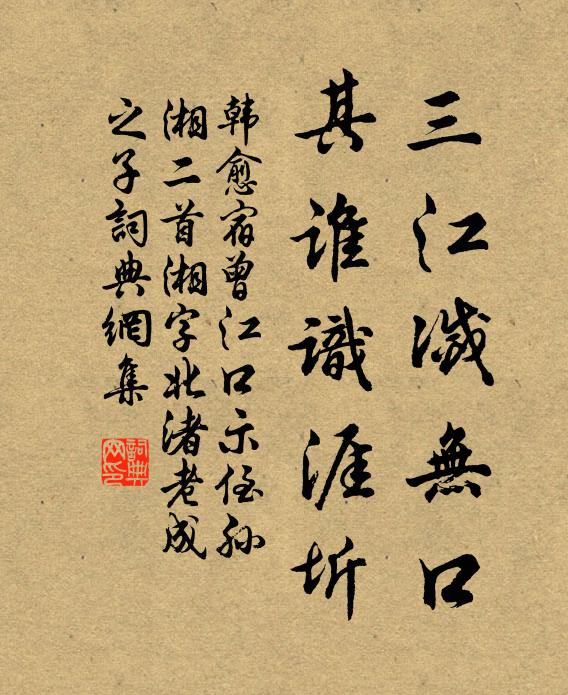 三江滅無口
其誰識涯圻
韩愈宿曾江口示侄孙
湘二首湘字北渚老成
之子詞典網集
詞典
网印